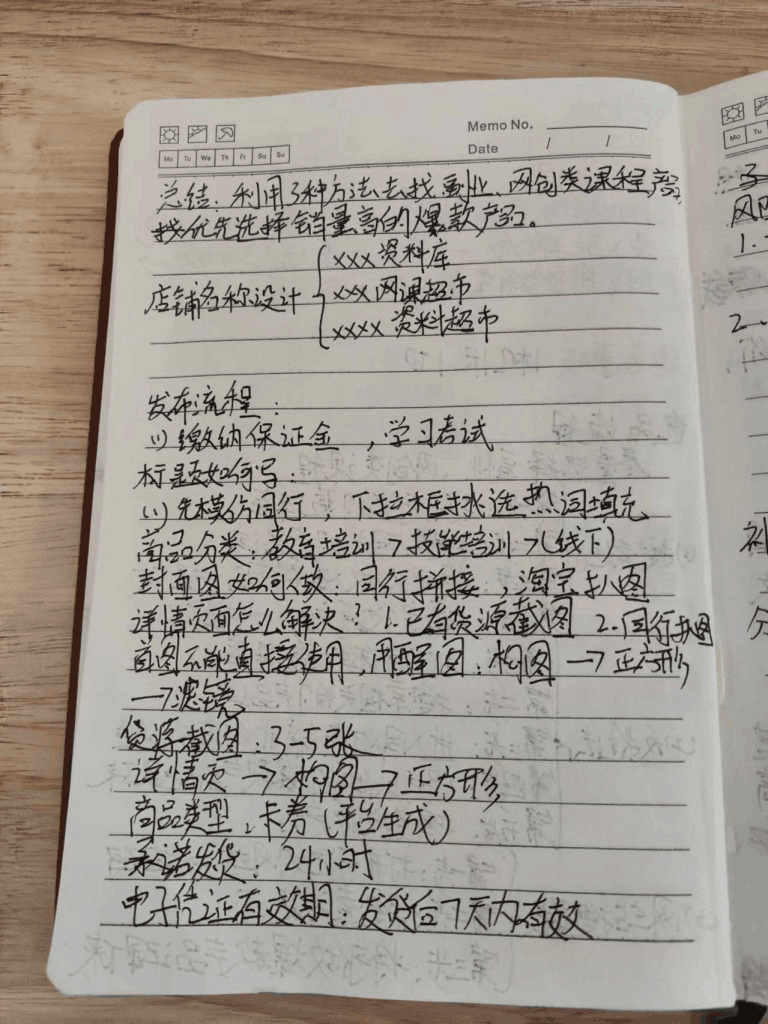 Memo No.
Mo Tu We Th Fr Sa Su
Date / /
总结:利用3种方法去找副业、网创类课程,产品
找优先选择销量高的爆款产品。
店铺名称设计
xxx资料库
xxx网课超市
xxxx资料超市
发布流程:
(1)缴纳保证金,学习考试
标题如何写:
(1)先模仿同行,下拉框挑选热词填充
商品分类:教育培训>技能培训>(线下)
封面图如何做:同行拼接,淘宝扒图
详情页面怎么解决?1.已有货源截图 2.同行扒图
首图不能直接使用,用醒图:构图→正方形
→滤镜
货源截图:3-5张
详情页→构图→正方形
商品类型:卡券(平台生成)
承诺发货:24小时
电子凭证有效期:发货后7天内有效
Mo Tu
1.
2.
补
分